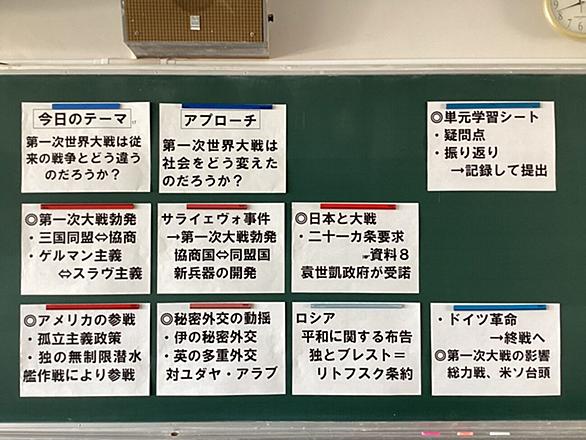 今日のテーマ
第一次世界大戦は従
来の戦争とどう違う
のだろうか？
アプローチ
第一次世界大戦は
社会をどう変えた
のだろうか？
◎単元学習シート
・疑問点
・振り返り
→記録して提出
◎第一次大戦勃発
・三国同盟⇔協商
・ゲルマン主義
⇔スラヴ主義
サライェヴォ事件
→第一次大戦勃発
協商国⇔同盟国
新兵器の開発
◎日本と大戦
・二十一カ条要求
☞資料８
袁世凱政府が受諾
◎アメリカの参戦
・孤立主義政策
・独の無制限潜水
艦作戦により参戦
◎秘密外交の動揺
・伊の秘密外交
・英の多重外交
対ユダヤ・アラブ
ロシア
平和に関する布告
独とブレスト＝
リトフスク条約
・ドイツ革命
→終戦へ
◎第一次大戦の影響
総力戦、米ソ台頭